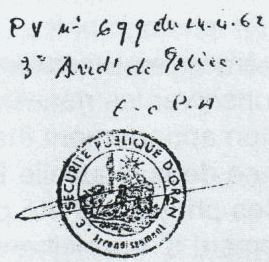 PV n° 699 du 24.4.62
3e Arrdt de Police
SECURITE PUBLIQUE D'ORAN
3e Arrondissement